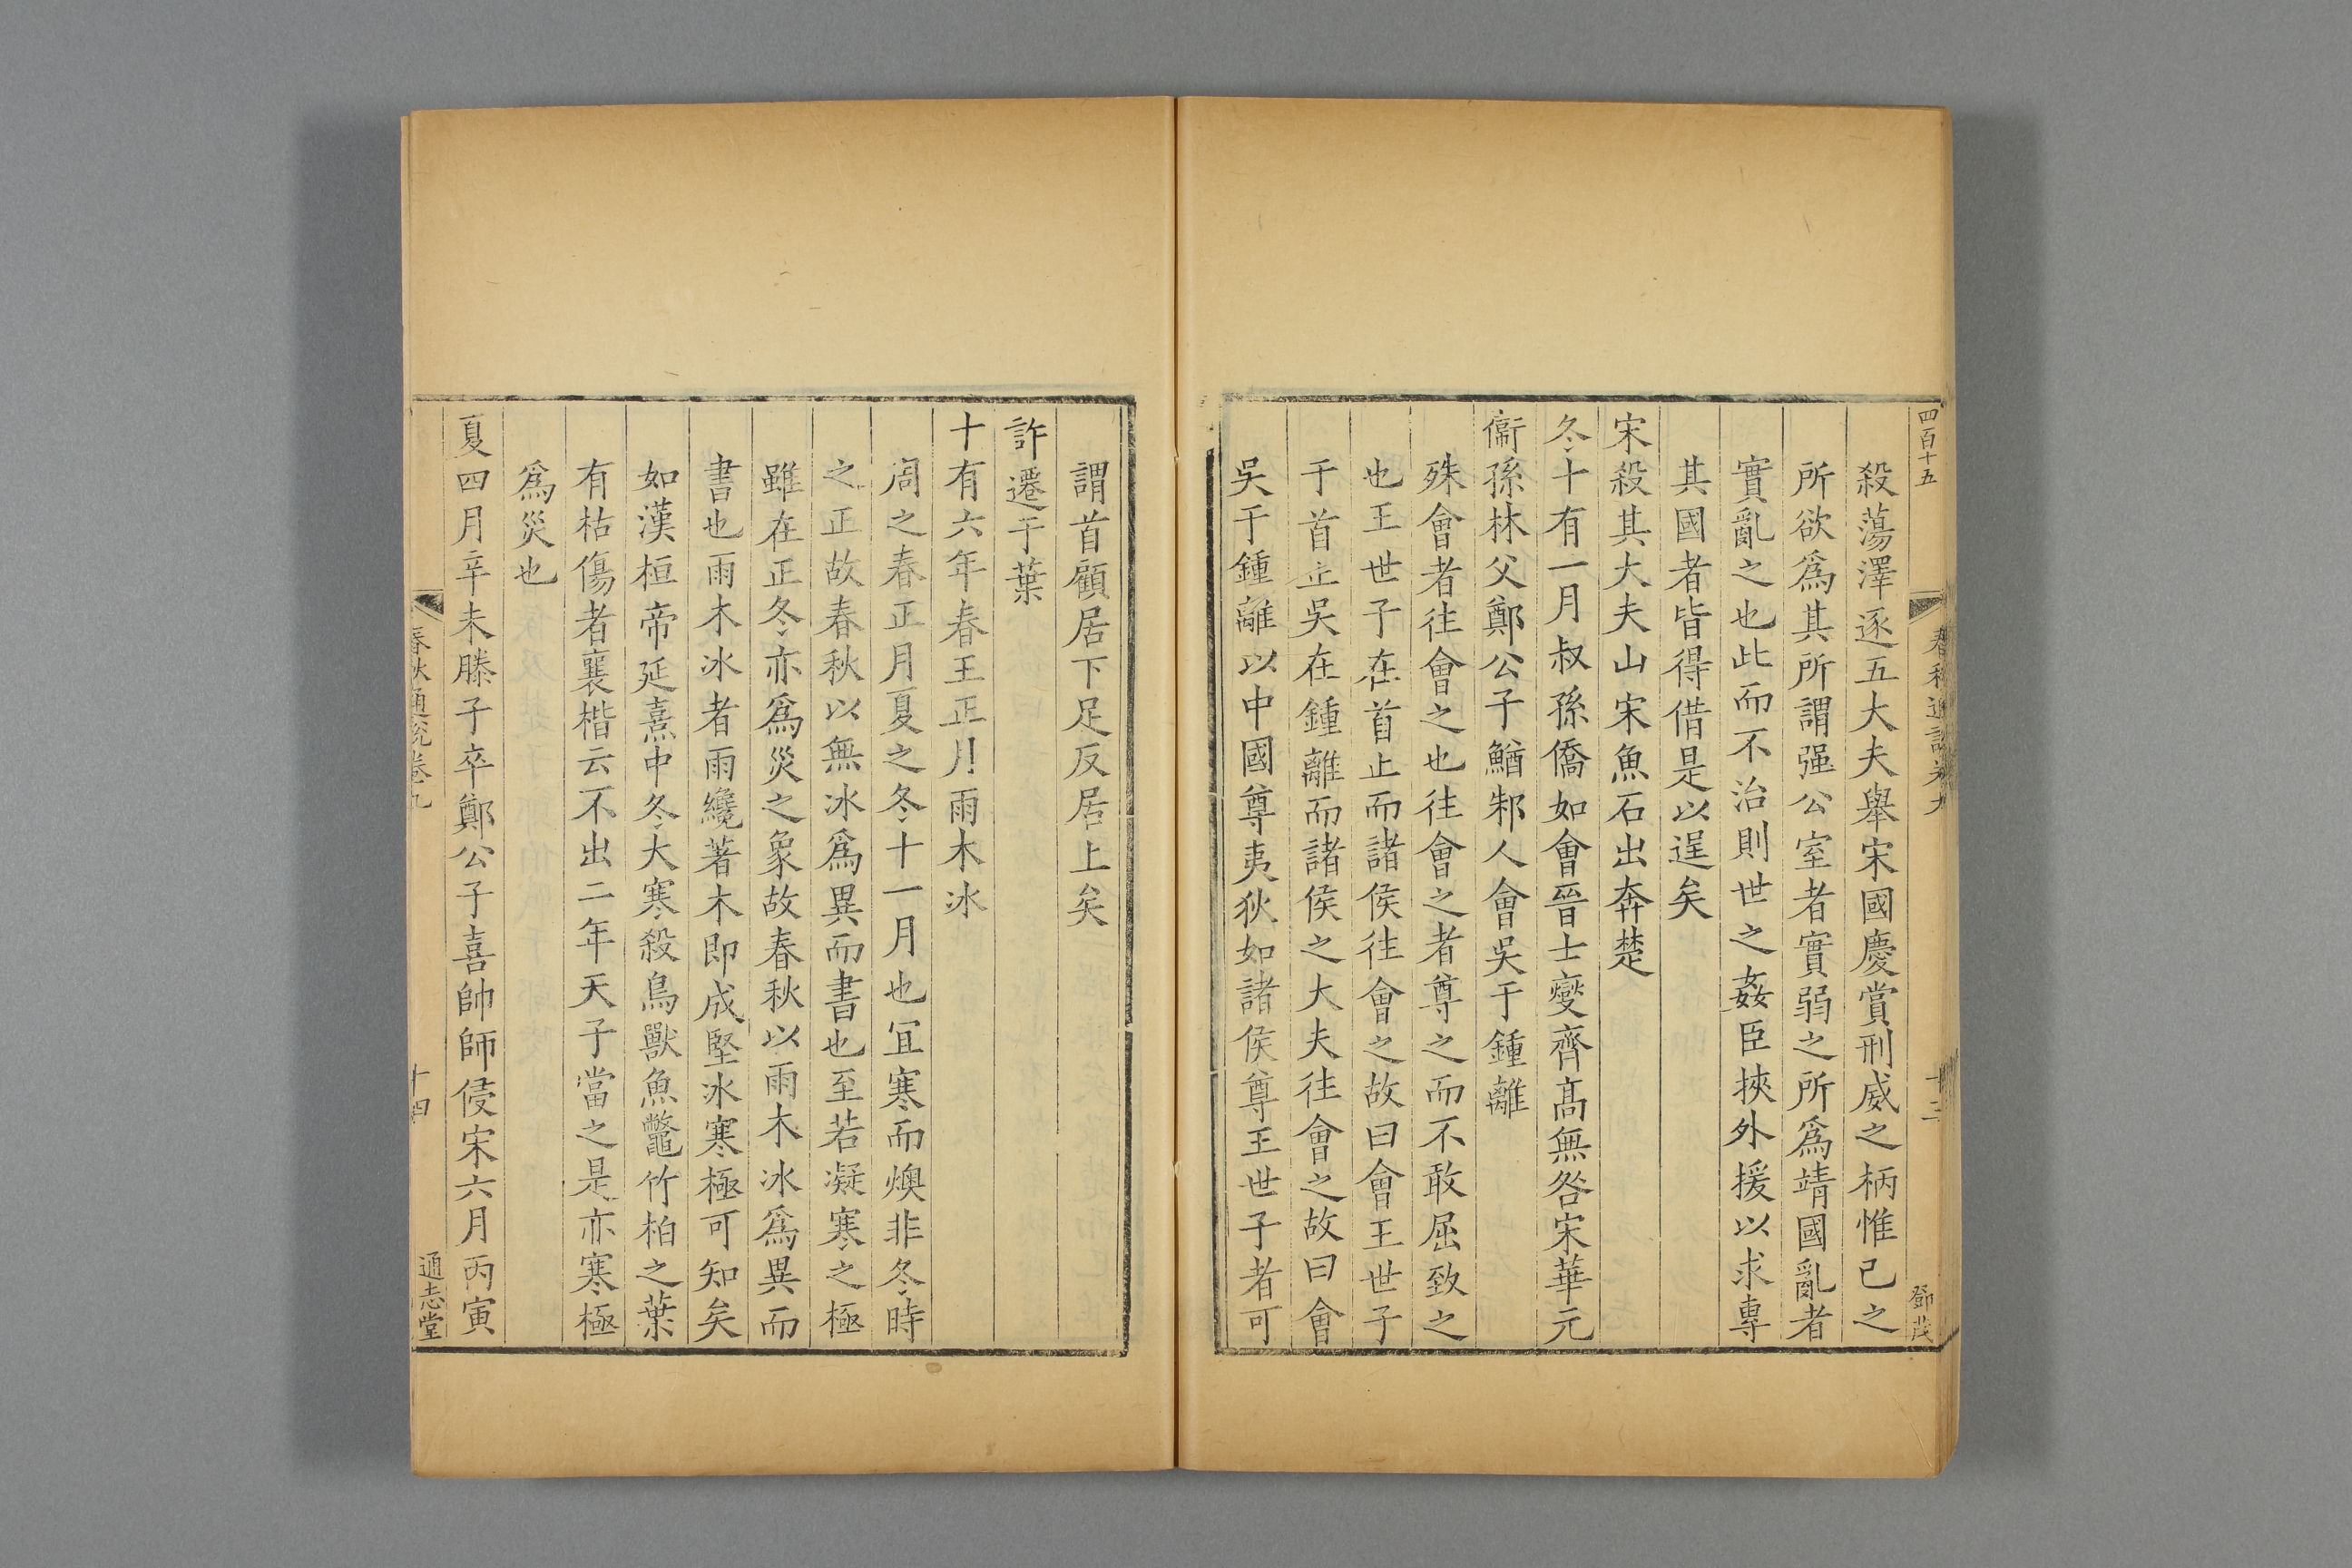 四百十五
十三
鄧茂
殺蕩澤逐五大夫舉宋國慶賞刑威之柄惟己之
所欲爲其所謂强公室者實弱之所爲靖國亂者
實亂之也此而不治則世之姦臣挾外援以求專
其國者皆得借是以逞矣
宋殺其大夫山宋魚石出奔楚
冬十有一月叔孫僑如會晉士燮齊髙無咎宋華元
衞孫林父鄭公子鰌邾人會吳于鍾離
殊會者往會之也往會之者尊之而不敢屈致之
也王世子在首止而諸侯往會之故曰會王世子
于首止吳在鍾離而諸侯之大夫往會之故曰會
吳于鍾離以中國尊夷狄如諸侯尊王世子者可
謂首顧居下足反居上矣
許遷于葉
十有六年春王正月雨木冰
周之春正月夏之冬十一月也宜寒而燠非冬時
之正故春秋以無冰爲異而書也至若凝寒之極
雖在正冬亦爲災之象故春秋以雨木冰爲異而
書也雨木冰者雨纔著木即成堅冰寒極可知矣
如漢桓帝延熹中冬大寒殺鳥獸魚鼈竹柏之葉
有枯傷者襄楷云不出二年天子當之是亦寒極
爲災也
夏四月辛未滕子卒鄭公子喜帥師侵宋六月丙寅
春秋通說卷九
十四
通志堂